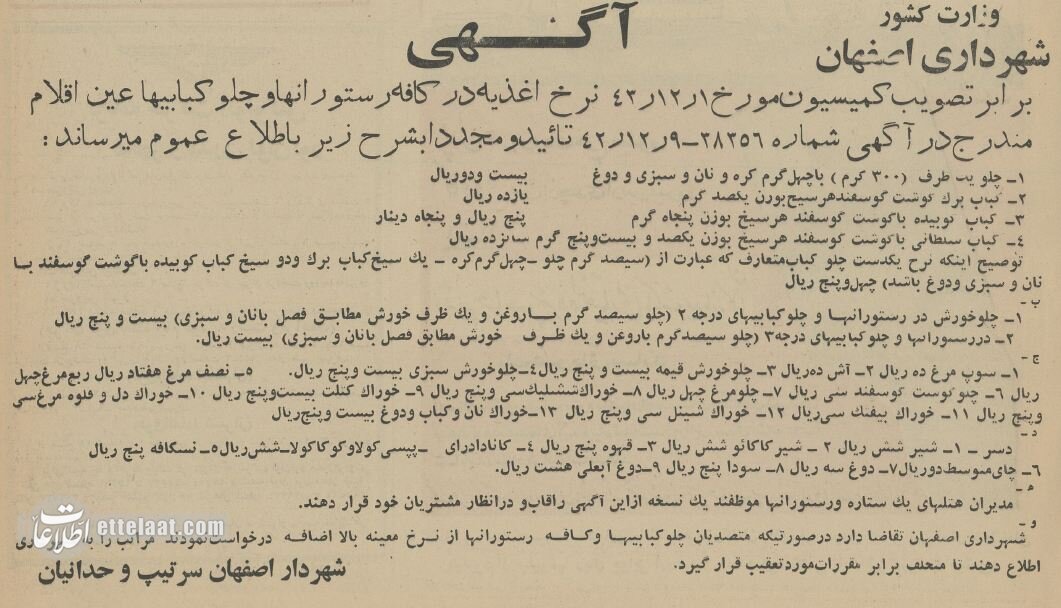 وزارت کشور
شهرداری اصفهان
آگهی
برابر تصویب کمیسیون مورخ ۴۳٫۱۲٫۱ نرخ اغذیه در کافه رستورانها و چلو کبابیها عین اقلام
مندرج در آگهی شماره ۳۸۳۵۶ـ۹٫۱۲٫۴۲ تائید و مجددا بشرح زیر باطلاع عموم میرساند :
۱ـ چلو یک ظرف (۳۰۰ گرم) باچهل گرم کره و نان و سبزی و دوغ بیست ودوریال
۲ـ کباب برك گوشت گوسفند هرسیخ بوزن یکصد گرم یازده ریال
۳ـ کباب کوبیده باگوشت گوسفند هر سیخ بوزن پنجاه گرم پنج ریال و پنجاه دینار
۴ـ کباب سلطانی باگوشت گوسفند هرسیخ بوزن یکصد و بیست وپنج گرم شانزده ریال
توضیح اینکه نرخ یکدست چلو کباب متعارف که عبارت از (سیصد گرم چلو ـ چهل گرم کره ـ یك سیخ کباب برك ودو سیخ کباب کوبیده باگوشت گوسفند بـا
نان و سبزی ودوغ باشد) چهل وپنج ریال
ب ـ
۱ـ چلوخورش در رستورانهـا و چلوکبابیهای درجه ۲ (چلو سیصد گرم بـاروغن و یك ظرف خورش مطابـق فصل بانان و سبزی) بیست و پنج ریال
۲ـ دررستورانها و چلوکبابیهای درجه۳ (چلو سیصدگرم باروغن و یك ظـرف خورش مطابق فصل بانان و سبزی) بیست ریال.
ج ـ
۱ـ سوپ مرغ ده ریال ۲ـ آش ده ریال ۳ـ چلوخورش قیمه بیست و پنج ریال ۴ـ چلوخورش سبزی بیست وپنج ریال. ۵ـ نصف مرغ هفتاد ریال ربع مرغ چهل
ریال ۶ـ چلوگوشت گوسفند سی ریال ۷ـ چلومرغ چهل ریال ۸ـ خوراك ششلیك سی و پنج ریال ۹ـ خوراك کتلت بیست وپنج ریال ۱۰ـ خوراك دل و قلوه مرغ سی
وپنج ریال ۱۱ـ خوراك بیفتك سی ریال ۱۲ـ خوراك شینل سی وپنج ریال ۱۳ـ خوراك نان وکباب ودوغ بیست وپنج ریال
د ـ
دسر ـ ۱ـ شیر شش ریال ۲ ـ شیرکاکائو شش ریال ۳ـ قهوه پنج ریال ۴ـ کانادادرای ـ پپسی کولاوکوکاکولاـ شش ریال ۵ـ نسکافه پنج ریال
۶ـ چای متوسط دوریال ۷ـ دوغ سه ریال ۸ـ سودا پنج ریال ۹ـ دوغ آبعلی هشت ریال.
ه ـ
مدیران هتلهای یك ستاره ورستورانها موظفند یك نسخه ازاین آگهی راقاب و درانظار مشتریان خود قرار دهند.
و ـ
شهرداری اصفهان تقاضا دارد درصورتیکه متصدیان چلوکبابیهـا وکـافـه رستورانها از نرخ معینه بالا اضافـه درخواست نمودند مراتب را
اطلاع دهند تا متخلف برابر مقررات مورد تعقیب قرار گیرد.
شهردار اصفهان سرتیپ وحدانیان
اطلاعات ettelaat.com